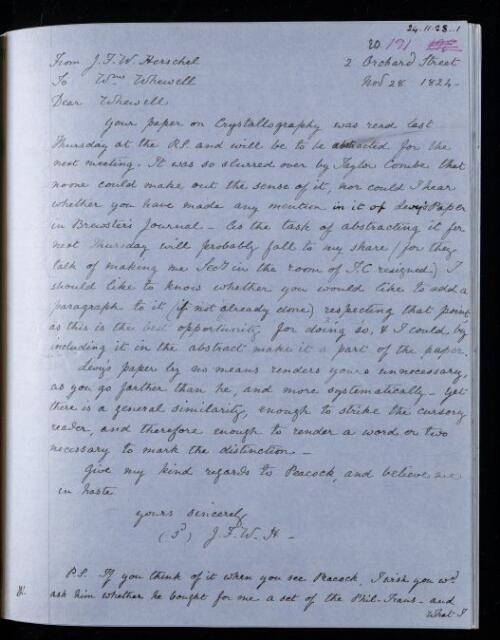 24.11.28.1
20 171
From J.F.W. Herschel 2 Orchard Street
To Wm Whewell Nov 28 1824-
Dear Whewell
Your paper on Crystallography was read last
Thursday at the RS and will be to be abstracted for the
next meeting. It was so slurred over by Taylor Combe that
no one could make out the sense of it, nor could I hear
whether you have made any mention in it of Levy's Paper
in Brewster's Journal - As the task of abstracting it for
next Thursday will probably fall to my share (for they
talk of making me Secy in the room of T.C resigned) I
should like to know whether you would like to add a
paragraph to it (if not already done) respecting that point
as this is the best opportunity for doing so, & I could by
including it in the abstract make it a part of the paper.
Levy's paper by no means renders yours unnecessary,
as you go farther than he, and more systematically - yet
there is a general similarity, enough to strike the cursory
reader, and therefore enough to render a word or two
necessary to mark the distinction -
Give my kind regards to Peacock, and believe me
in haste
yours sincerely
(S) J.F.W.H-
P.S. If you think of it when you see Peacock, I wish you wd
ask him whether he bought for me a set of the Phil-Trans- and
What I